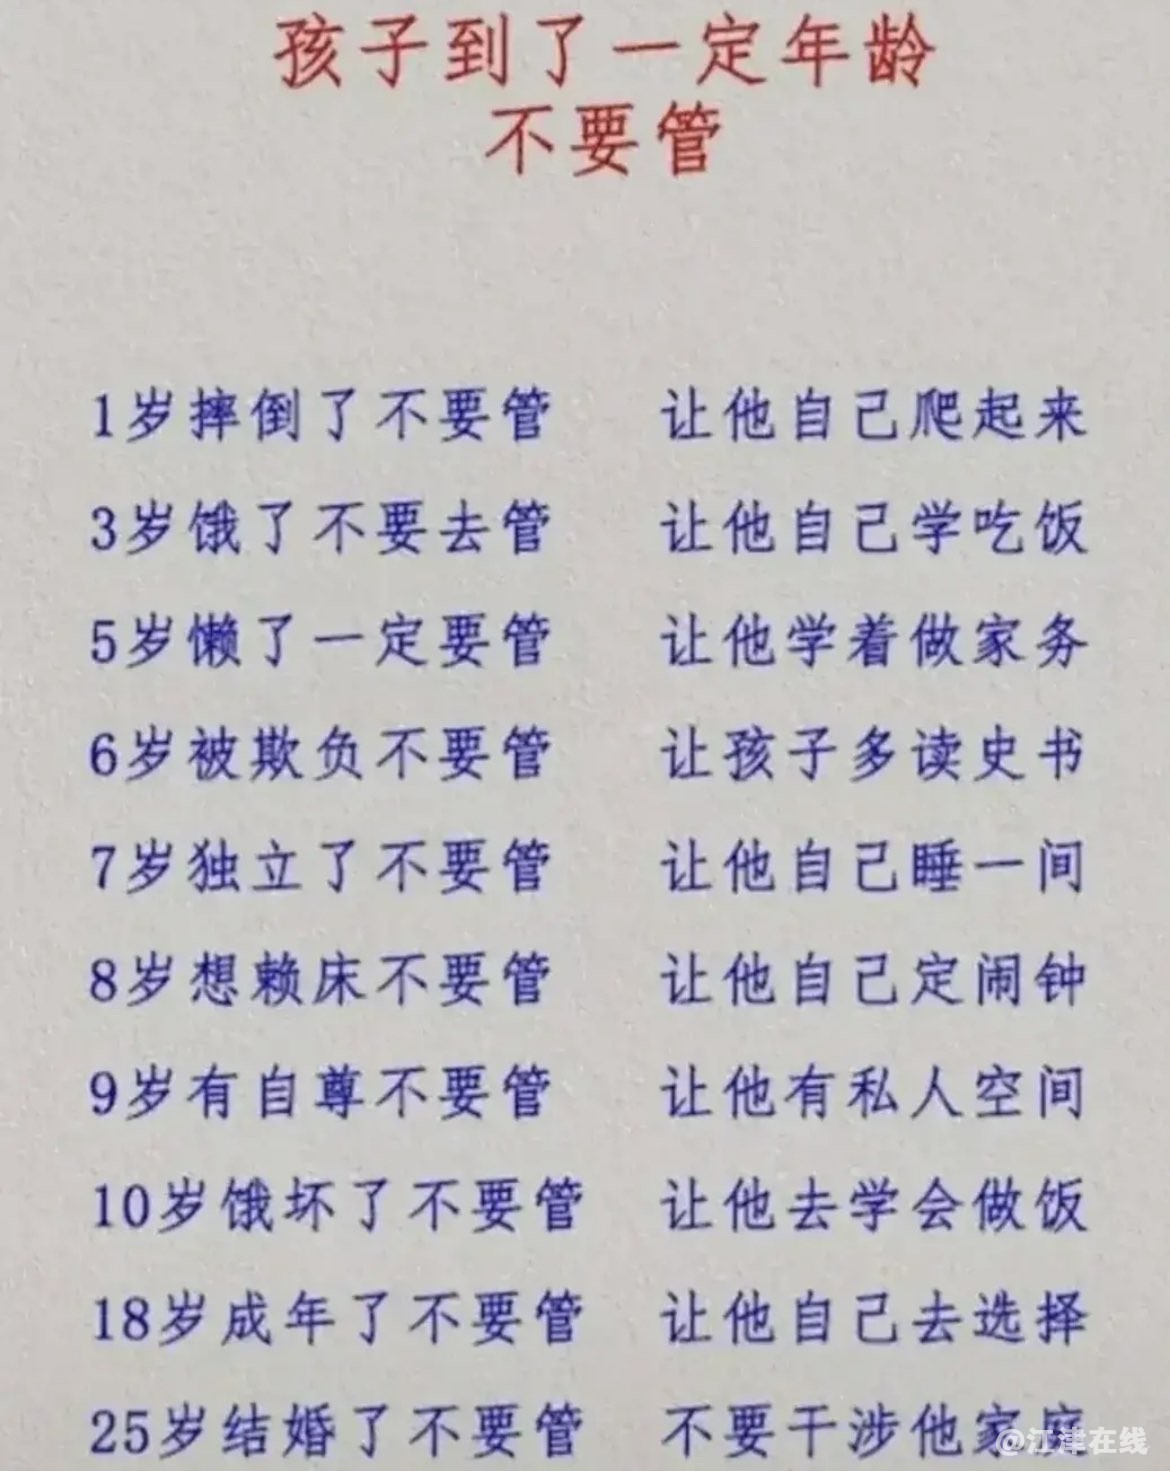 孩子到了一定年龄
不要管
1岁摔倒了不要管 让他自己爬起来
3岁饿了不要去管 让他自己学吃饭
5岁懒了一定要管 让他学着做家务
6岁被欺负不要管 让孩子多读史书
7岁独立了不要管 让他自己睡一间
8岁想赖床不要管 让他自己定闹钟
9岁有自尊不要管 让他有私人空间
10岁饿坏了不要管 让他去学会做饭
18岁成年了不要管 让他自己去选择
25岁结婚了不要管 不要干涉他家庭
@江津在线